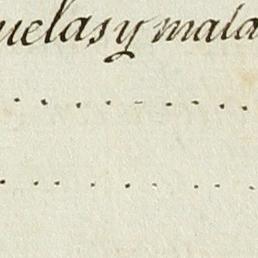 uelas y mala
. . . . . . . .
. . . . . . . .